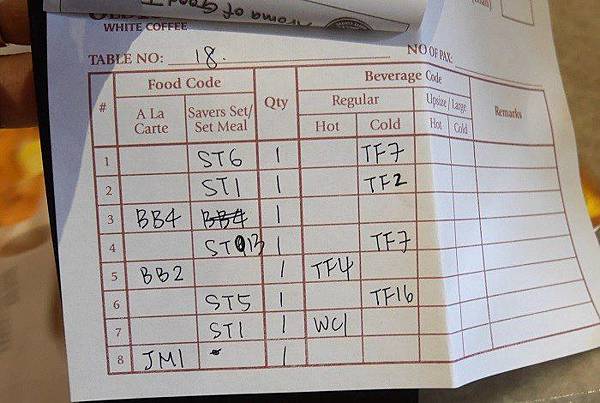 Aroma of Good T
WHITE COFFEE
TABLE NO: 18.
NO OF PAX:
# Food Code Qty Beverage Code Remarks
A La Carte Savers Set/ Set Meal Regular Upsize / Large
Hot Cold Hot Cold
1 ST6 1 TF7
2 ST1 1 TF2
3 BB4 BB4 1
4 ST 13 1 TF7
5 BB2 1 TF4
6 ST5 1 TF16
7 ST1 1 WC1
8 JM1 1